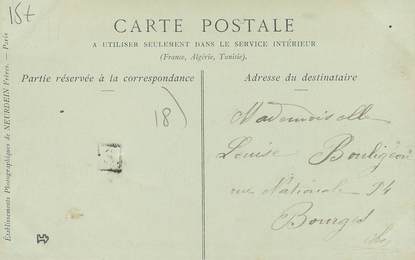 15t
CARTE POSTALE
A UTILISER SEULEMENT DANS LE SERVICE INTÉRIEUR
(France, Algérie, Tunisie).
Partie réservée à la correspondance
Adresse du destinataire
Établissements Photographiques de NEURDEIN Frères. — Paris
18)
Mademoiselle
Louise
rue Nationale 14
Bourges